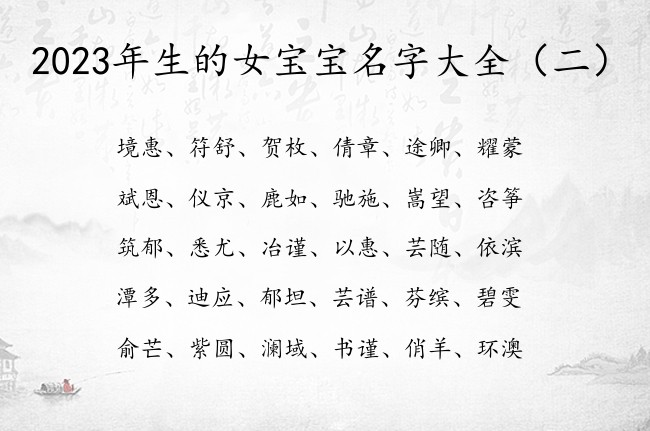 2023年生的女宝宝名字大全（二）
境惠、符舒、贺枚、倩章、途卿、耀蒙
斌恩、仪京、鹿如、驰施、嵩望、咨筝
筑郁、悉尤、冶谨、以惠、芸随、依滨
潭多、迪应、郁坦、芸谱、芬缤、碧雯
俞芒、紫圆、澜域、书谨、俏羊、环澳